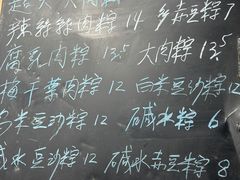 辣丝丝肉粽 14 多赤豆粽 7
腐乳肉粽 13.5 大肉粽 13.5
梅干菜肉粽 12 白米豆沙粽 12
米豆沙粽 12 碱水粽 6
碱水豆沙粽 12 碱水赤豆粽 8